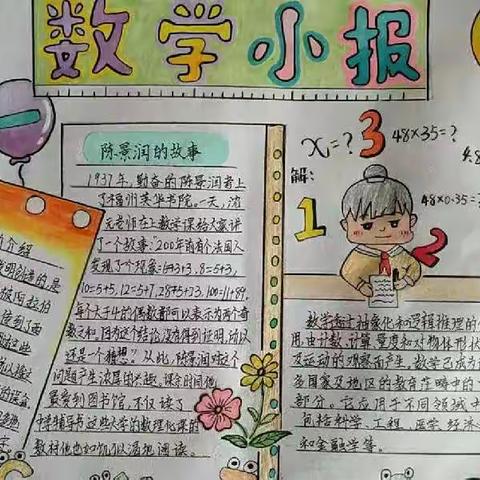 数学小报
陈景润的故事
1937年,勤奋的陈景润考上
了福州英华书院。一天,沈
元老师在上数学课给大家讲
了一个故事:200年前有个法国人
发现了个现象:6=3+3,8=5+3,
10=5+5,12=5+7,28=5+23,100=11+89,
每个大于4的偶数都可以表示为两个奇
数之和,因为这个结论没有得到证明,所以
还是一个猜想?从此,陈景润对这个
问题产生浓厚的兴趣,课余时间他
最爱到图书馆,不仅读了
中学辅导书,这些大学的数理化课的
教材他也如饥似渴地阅读。
介绍
是
被阿拉伯
传到了西
x=?
3
48×35=?
解:
48×0.35=?
1
2
数学源于抽象化和逻辑推理的
用,由计数、计算、量度和对物体形状
及运动的观察而产生。数学已成为
各国家及地区的教育范畴中的
部分。它应用于不同领域中
包括科学、工程、医学、经济
和金融学等。